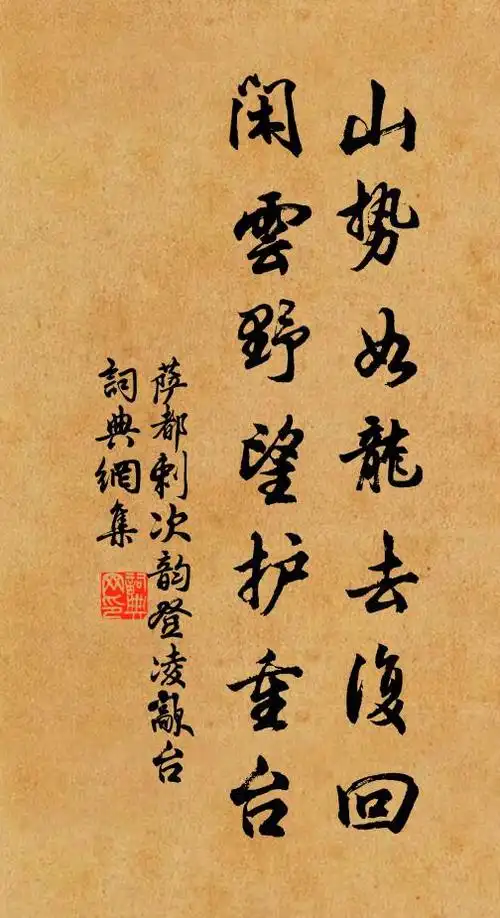 山势如龍去復回
闲雲野望护重台
萨都剌次韵登凌歊台
詞典網集
詞典網印